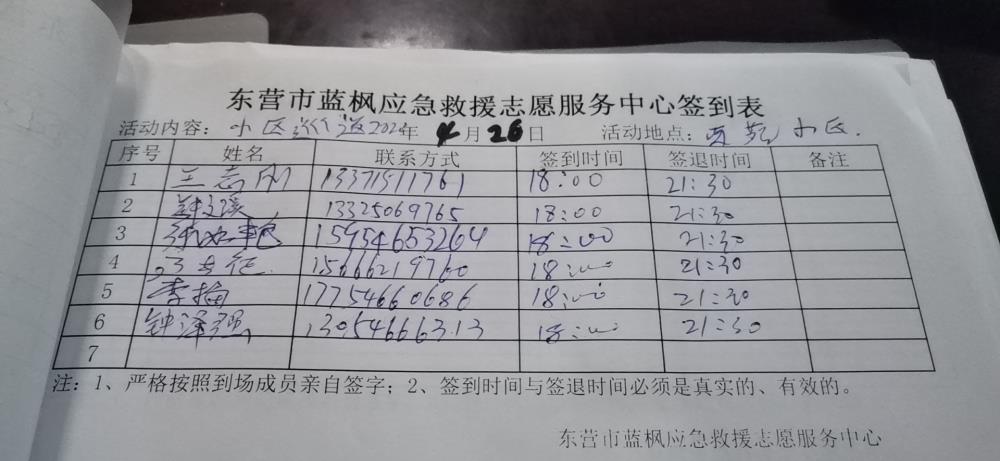 东营市蓝枫应急救援志愿服务中心签到表
活动内容: 小区巡逻 202 年 4 月 26 日 活动地点: 小区.
序号 姓名 联系方式 签到时间 签退时间 备注
1 王志刚 13371511761 18:00 21:30
2 13325069765 18:00 21:30
3 15954653264 18:00 21:30
4 15666219760 18:00 21:30
5 李梅 17754660686 18:00 21:30
6 钟泽强 13054666313 18:00 21:30
7
注: 1、严格按照到场成员亲自签字; 2、签到时间与签退时间必须是真实的、有效的。
东营市蓝枫应急救援志愿服务中心